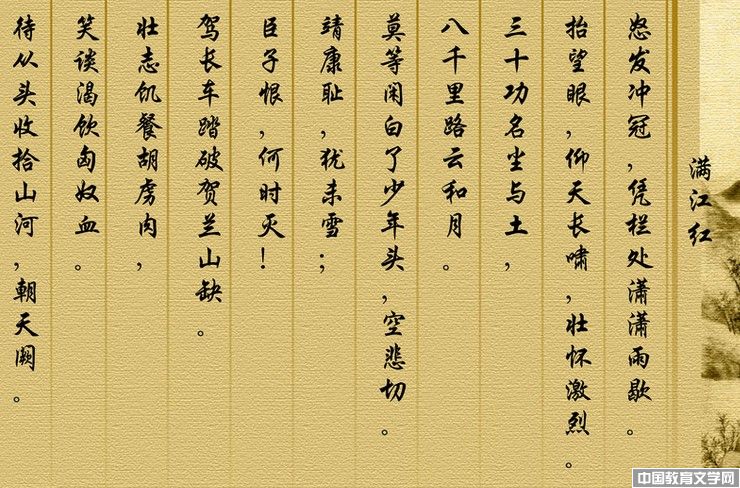 满江红
怒发冲冠，凭栏处潇潇雨歇。
抬望眼，仰天长啸，壮怀激烈。
三十功名尘与土，
八千里路云和月。
莫等闲白了少年头，空悲切。
靖康耻，犹未雪；
臣子恨，何时灭！
驾长车踏破贺兰山缺。
壮志饥餐胡虏肉，
笑谈渴饮匈奴血。
待从头收拾山河，朝天阙。
中国教育文学网